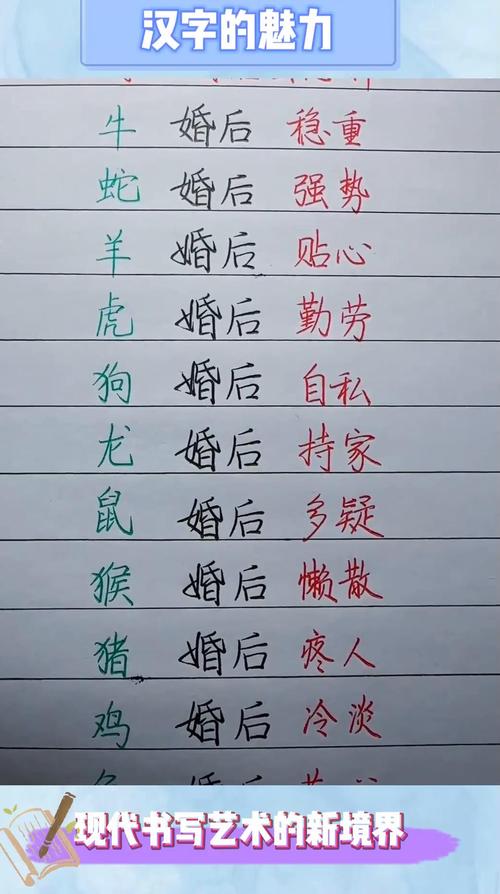 汉字的魅力
牛 婚后 稳重
蛇 婚后 强势
羊 婚后 贴心
虎 婚后 勤劳
狗 婚后 自私
龙 婚后 持家
鼠 婚后 多疑
猴 婚后 懒散
猪 婚后 疼人
鸡 婚后 冷淡
现代书写艺术的新境界